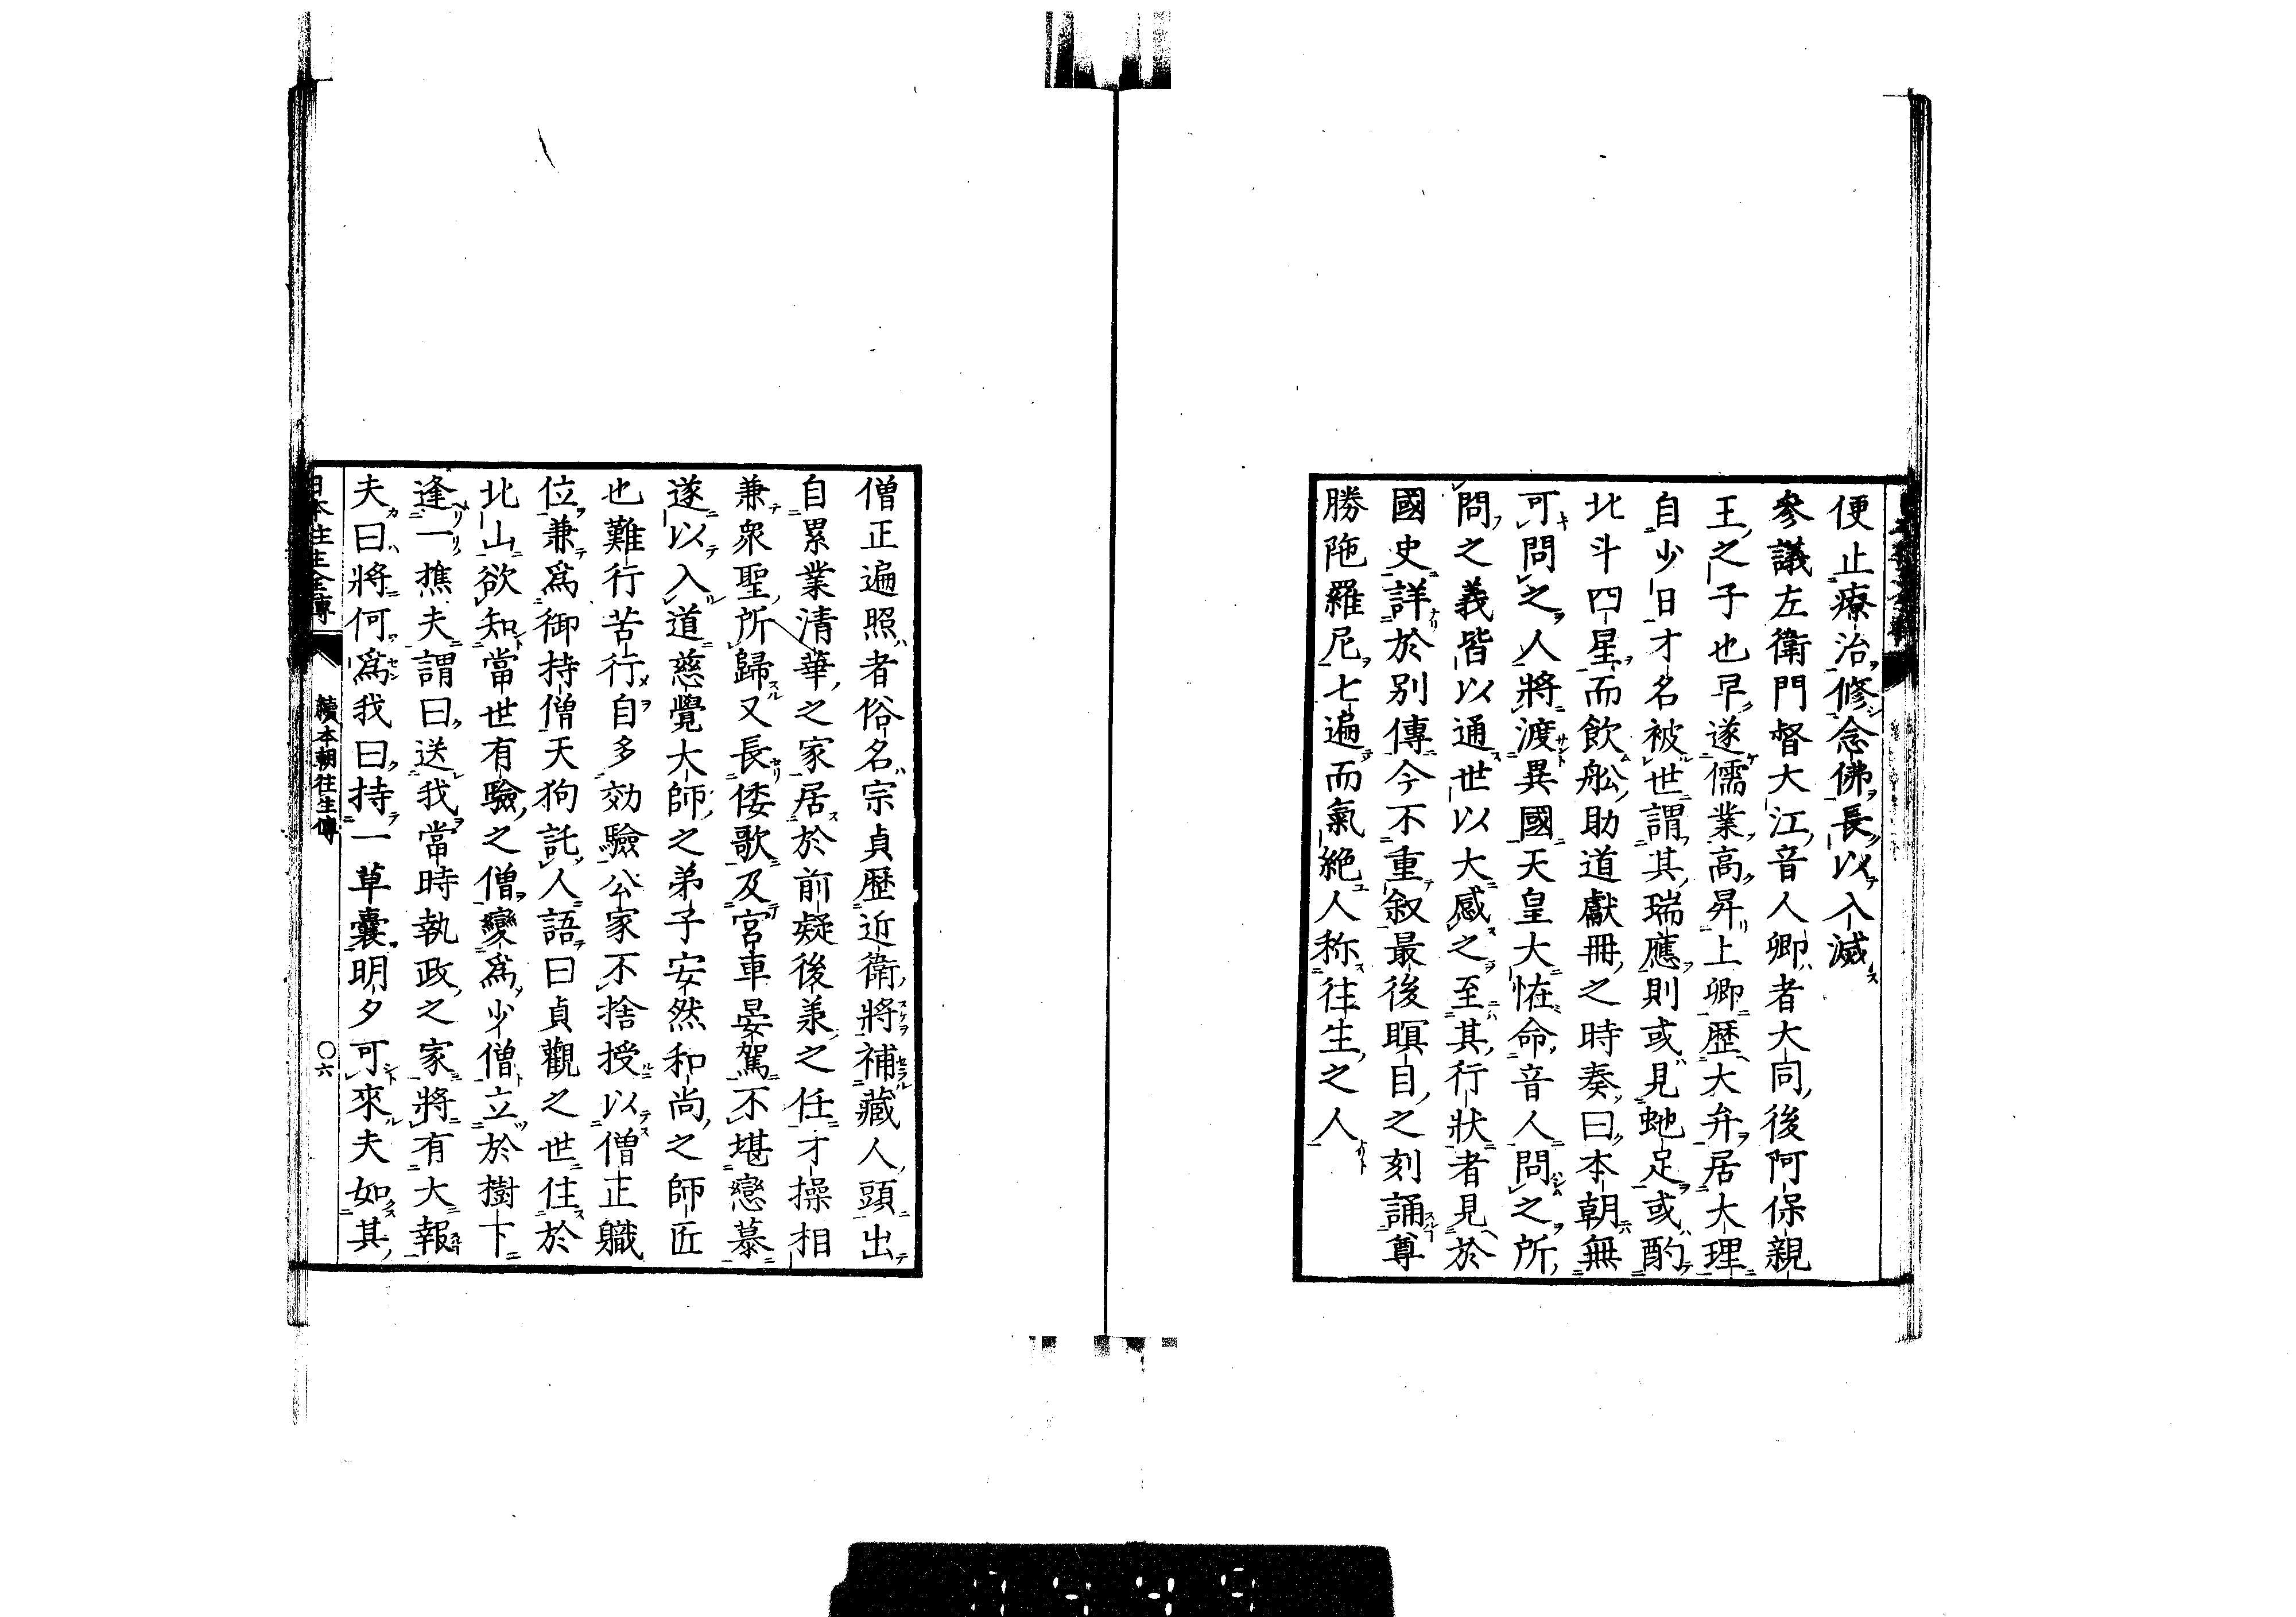 便止療治修念佛長以入滅
參議左衛門督大江音人卿者大同後阿保親
王之子也早遂儒業高昇上卿歷大弁居大理
自少日才名被世謂其瑞應則或見虵足或酌
北斗四星而飲舩助道獻冊之時奏曰本朝無
可問之人將渡異國天皇大恠命音人問之所
問之義皆以通世以大感之至其行狀者見於
國史詳於別傳今不重叙最後瞑目之刻誦尊
勝陁羅尼七遍而氣絶人称往生之人
僧正遍照者俗名宗貞歷近衛將補藏人頭出
自累業清華之家居於前疑後兼之任才操相
兼衆聖所歸又長倭歌及宮車晏駕不堪戀慕
遂以入道慈覺大師之弟子安然和尚之師匠
也難行苦行自多効驗公家不捨授以僧正職
位兼爲御持僧天狗託人語曰貞觀之世住於
北山欲知當世有驗之僧變爲少僧立於樹下
逢一樵夫謂曰送我當時執政之家將有大報
夫曰將何爲我曰持一草囊明夕可來夫如其
日本往生全傳 續本朝往生傳 〇六